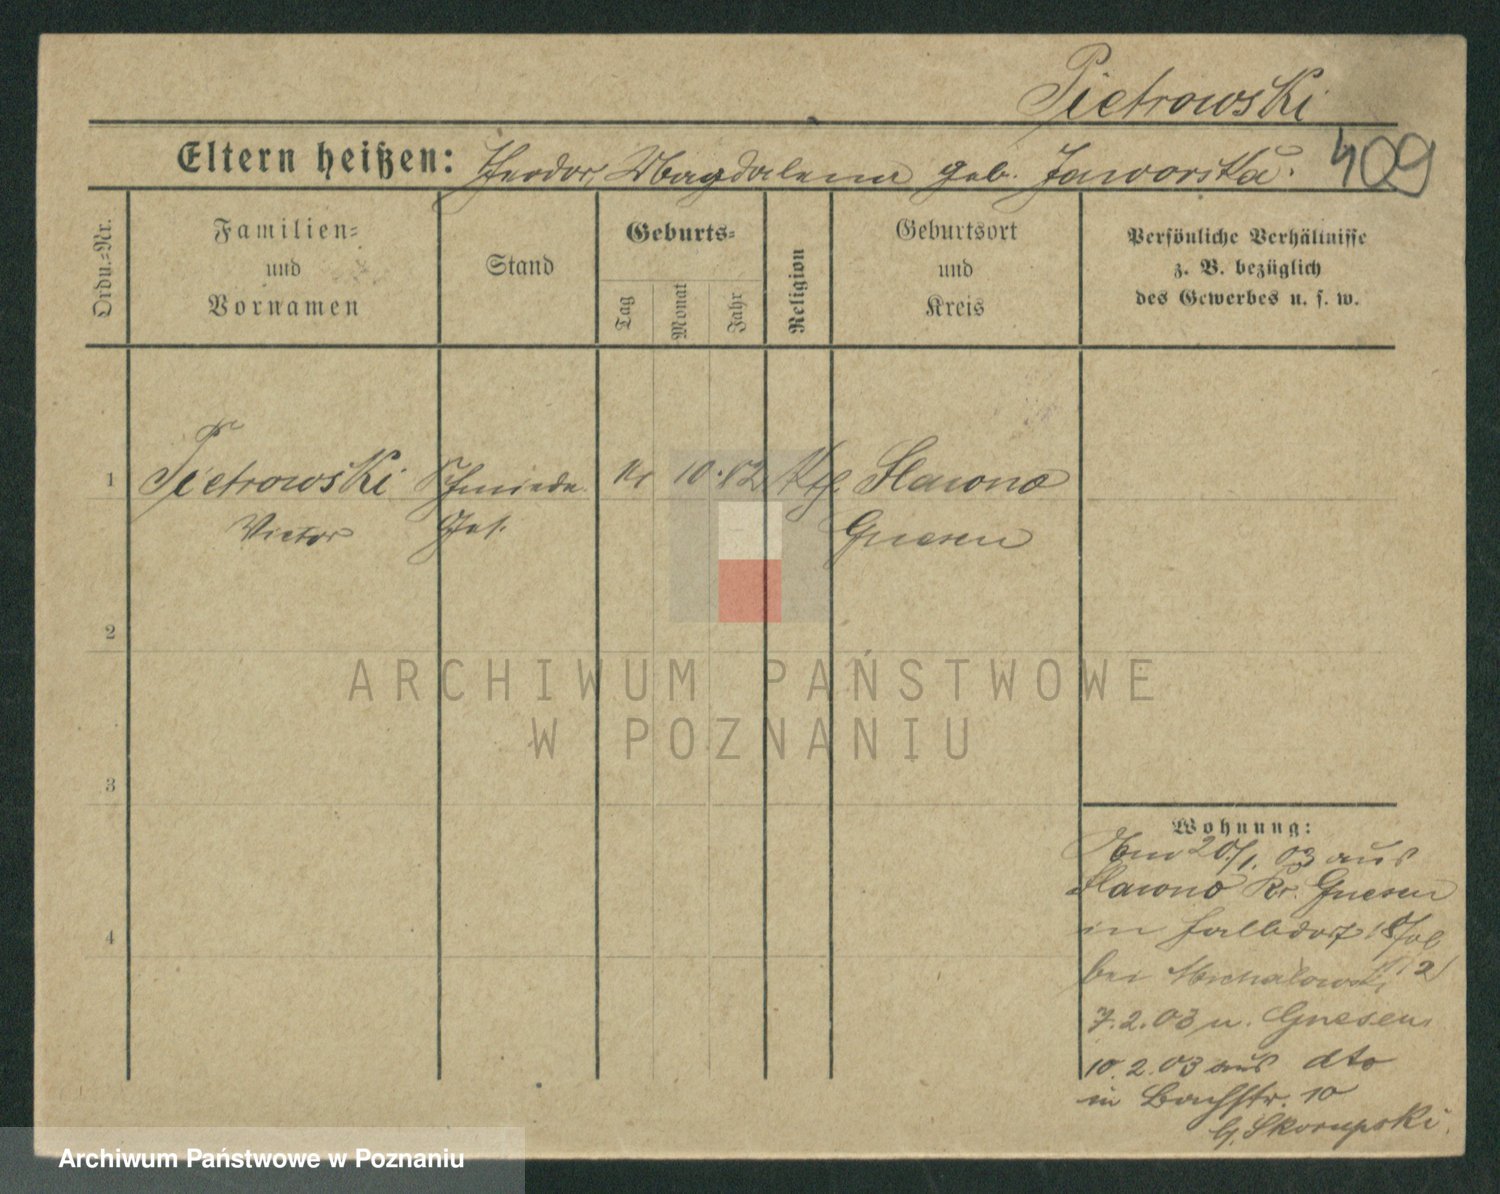 Pietrowski
409
Eltern heißen: Theodor, Magdalena geb. Jaworska.
Ordn.-Nr.
Familien-
und
Vornamen
Stand
Geburts-
Tag
Monat
Jahr
Religion
Geburtsort
und
Kreis
Persönliche Verhältnisse
z. B. bezüglich
des Gewerbes u. s. w.
1
Pietrowski Schmiede 10. 82 Kth. Slawno
Victor Ges. Gnesen
2
ARCHIWUM PAŃSTWOWE
W POZNANIU
3
4
Wohnung:
20/1. 03 aus
Slawno Kr. Gnesen
in
bei Michalowski
7.2.03 n. Gnesen
10.2.03 aus dto
in Bachstr. 10
Skorupski.
Archiwum Państwowe w Poznaniu